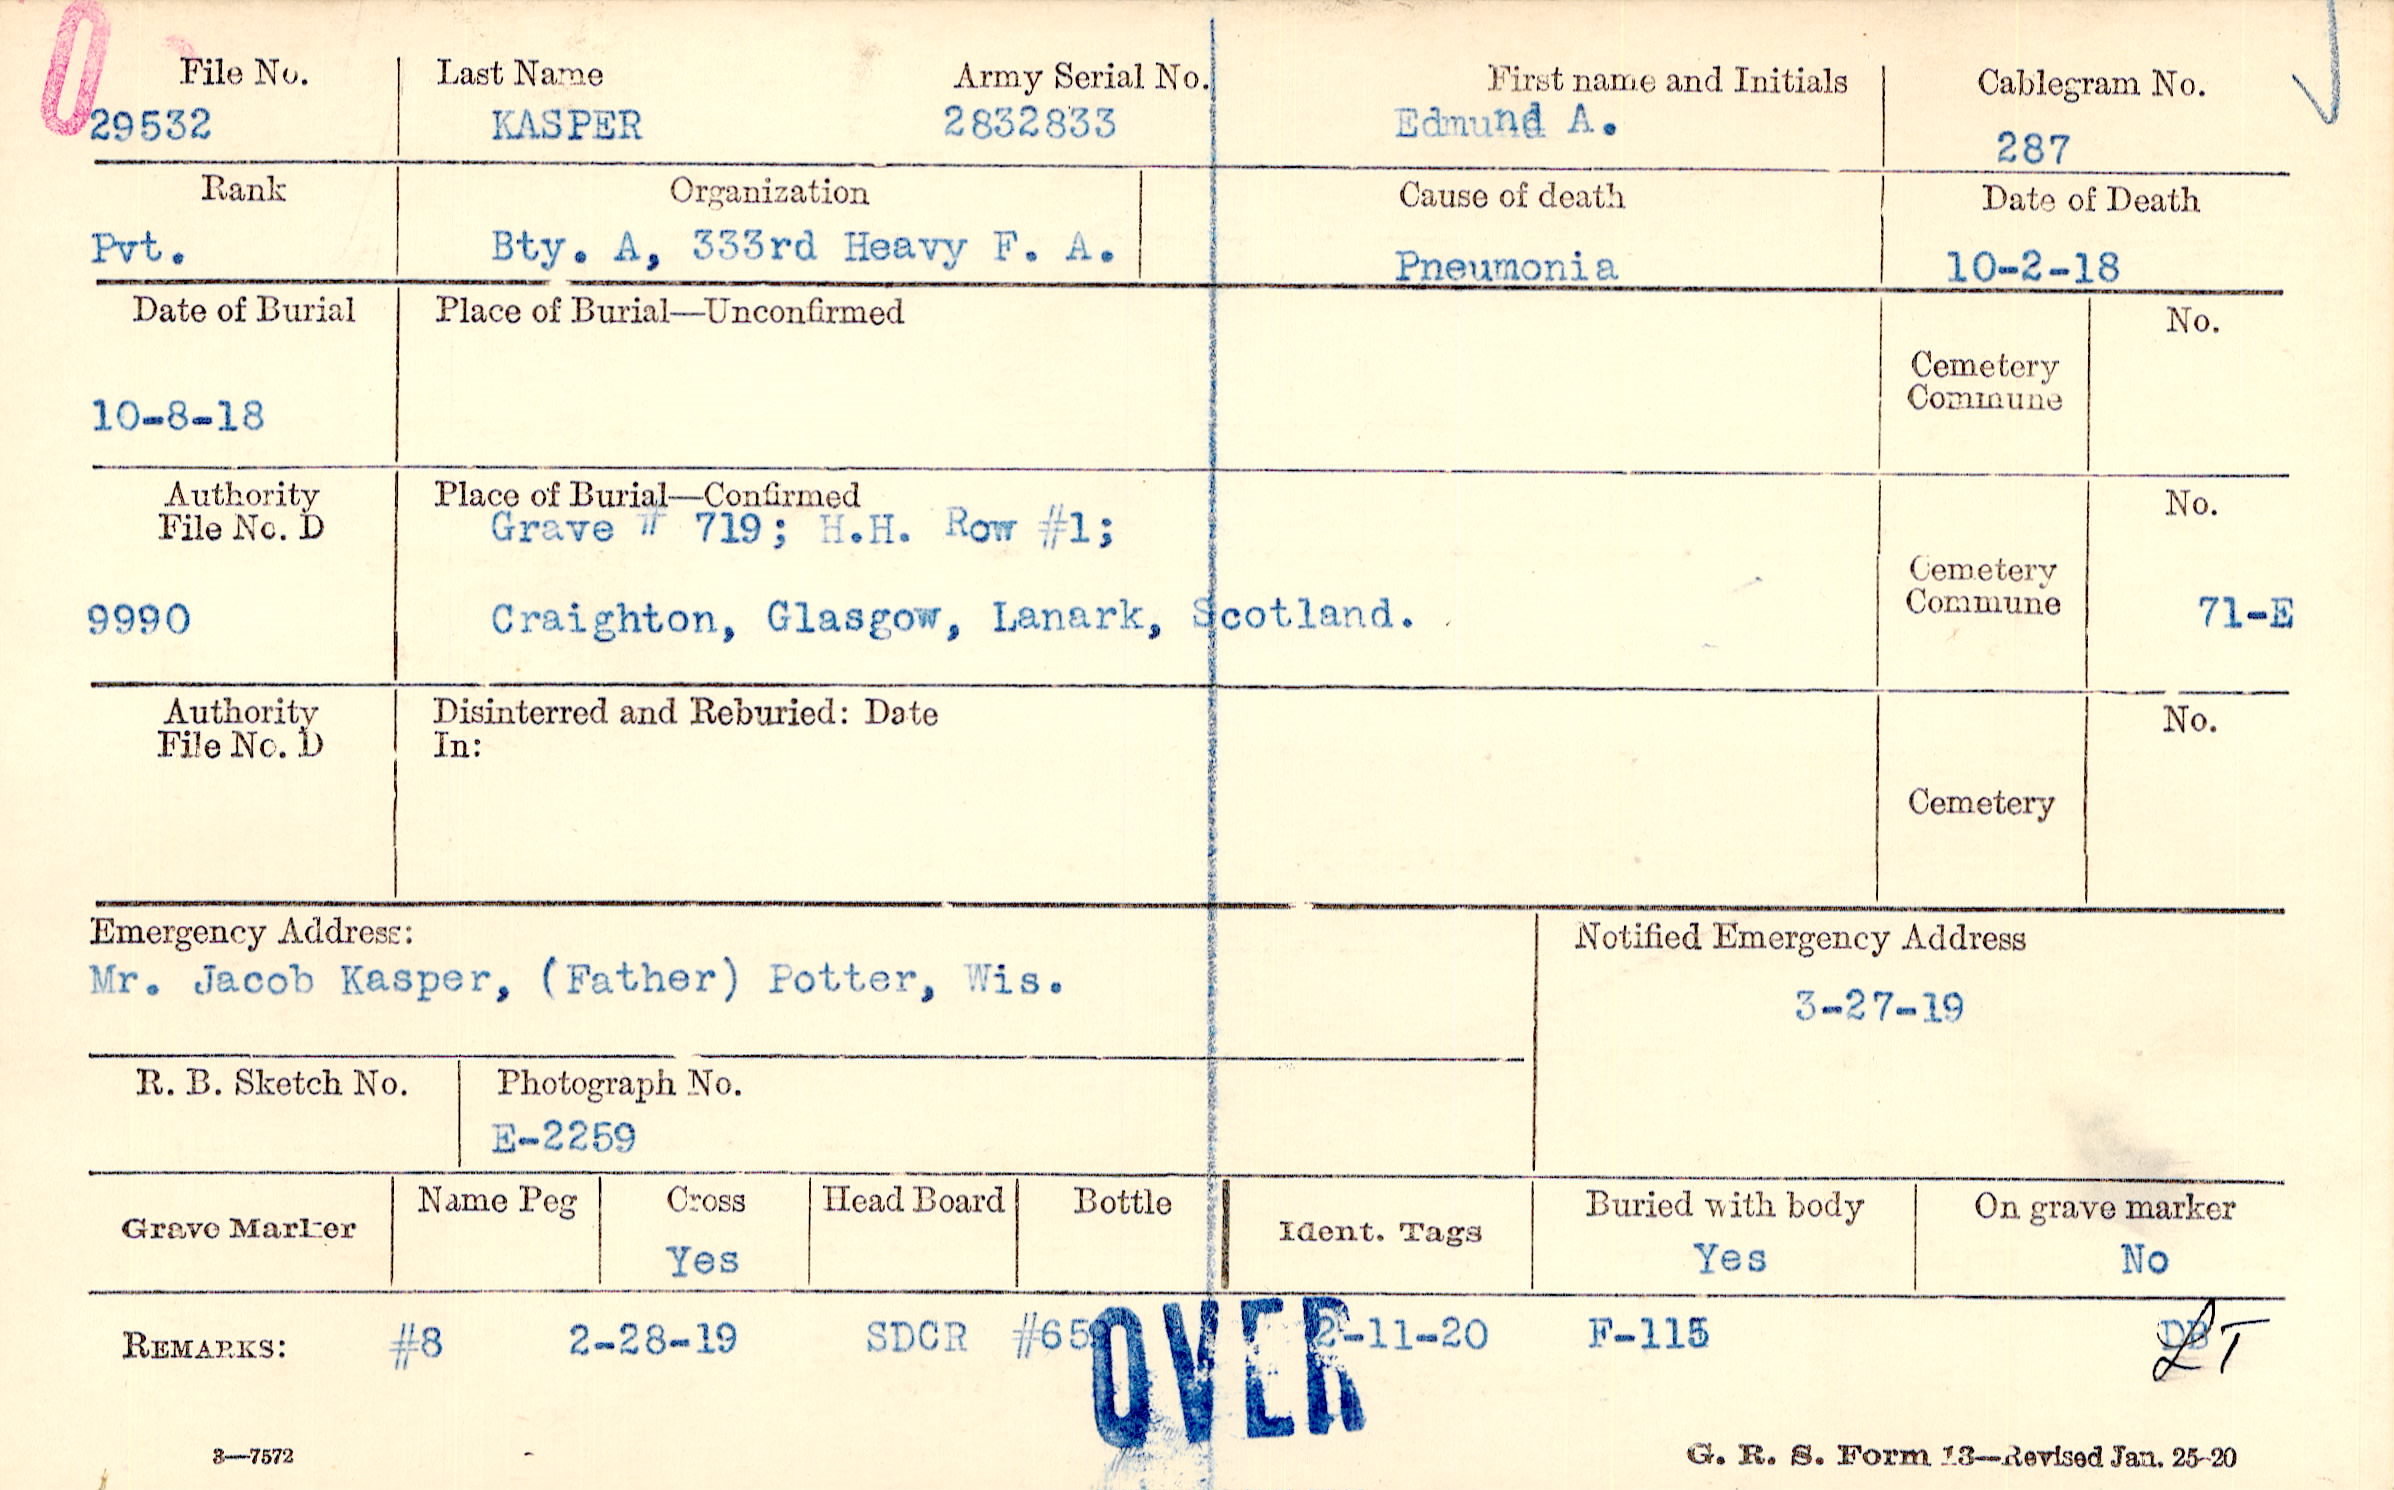 0
File No. Last Name Army Serial No. First name and Initials Cablegram No.
29532 KASPER 2832833 Edmund A. 287
Rank Organization Cause of death Date of Death
Pvt. Bty. A, 333rd Heavy F. A. Pneumonia 10-2-18
Date of Burial Place of Burial—Unconfirmed No.
Cemetery
Commune
10-8-18
Authority Place of Burial—Confirmed No.
File No. D Grave # 719; H.H. Row #1;
Cemetery
Commune
9990 Craighton, Glasgow, Lanark, Scotland. 71-E
Authority Disinterred and Reburied: Date No.
File No. D In:
Cemetery
Emergency Address: Notified Emergency Address
Mr. Jacob Kasper, (Father) Potter, Wis. 3-27-19
R. B. Sketch No. Photograph No.
E-2259
Grave Marker Name Peg Cross Head Board Bottle Ident. Tags Buried with body On grave marker
Yes Yes No
REMARKS: #8 2-28-19 SDCR 2-11-20 F-115 LT
OVER
3—7572 G. R. S. Form 13—Revised Jan. 25-20